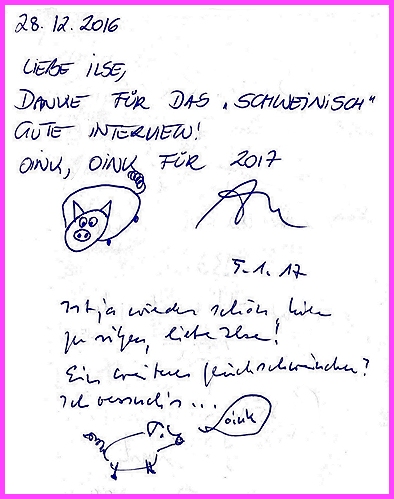 28.12.2016
LIEBE ILSE,
DANKE FÜR DAS „SCHWEINISCH“
GUTE INTERVIEW!
OINK, OINK FÜR 2017
5.1.17
Ist ja wieder schön, hier
zu sitzen, liebe Ilse!
Ein weiteres Glücksschweinchen?
Ich versuch's...
oink